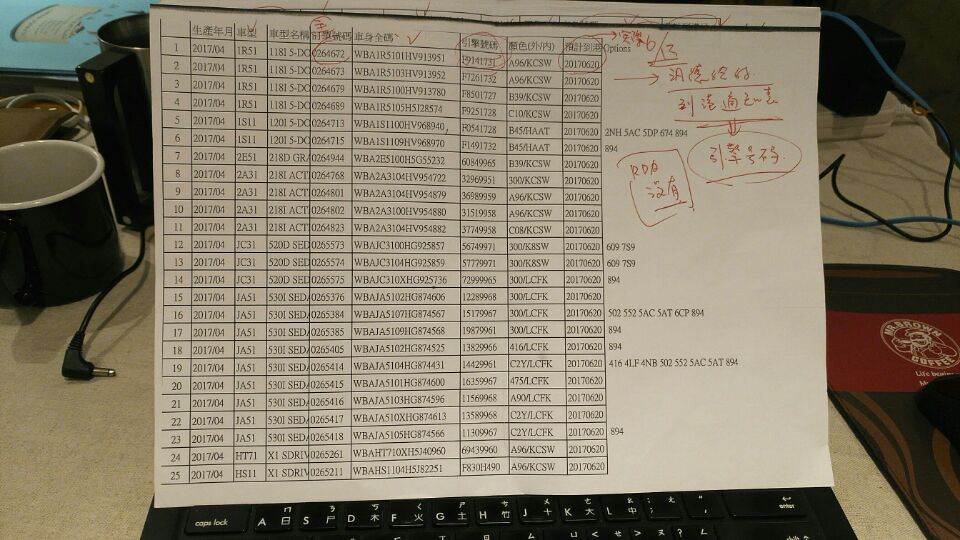 生產年月 車型 車型名稱 引擎號碼 車身全碼 引擎號碼 顏色(外/內) 預計到港 Options
1 2017/04 1R51 118I 5-DO 0264672 WBA1R5101HV913951 F9141731 A96/KCSW 20170620
2 2017/04 1R51 118I 5-DO 0264673 WBA1R5103HV913952 F7261732 A96/KCSW 20170620
3 2017/04 1R51 118I 5-DO 0264679 WBA1R5100HV913780 F8501727 B39/KCSW 20170620
4 2017/04 1R51 118I 5-DO 0264689 WBA1R5105H5J28574 F9251728 C10/KCSW 20170620
5 2017/04 1S11 120I 5-DO 0264713 WBA1S1100HV968940 F0541728 B45/HAAT 20170620 2NH 5AC 5DP 674 894
6 2017/04 1S11 120I 5-DO 0264715 WBA1S1109HV968970 F1491732 B45/HAAT 20170620 894
7 2017/04 2E51 218D GRA 0264944 WBA2E5100H5G55232 60849965 B39/KCSW 20170620
8 2017/04 2A31 218I ACT 0264768 WBA2A3104HV954722 32969951 300/KCSW 20170620
9 2017/04 2A31 218I ACT 0264801 WBA2A3104HV954879 36989959 A96/KCSW 20170620
10 2017/04 2A31 218I ACT 0264802 WBA2A3100HV954880 31519958 A96/KCSW 20170620
11 2017/04 2A31 218I ACT 0264823 WBA2A3104HV954882 37749958 C08/KCSW 20170620
12 2017/04 JC31 520D SED 0265573 WBAJC3100HG925857 56749971 300/K8SW 20170620 609 7S9
13 2017/04 JC31 520D SED 0265574 WBAJC3104HG925859 57779971 300/K8SW 20170620 609 7S9
14 2017/04 JC31 520D SED 0265575 WBAJC310XHG925736 72999965 300/LCFK 20170620 894
15 2017/04 JA51 530I SEDA 0265376 WBAJA5102HG874606 12289968 300/LCFK 20170620
16 2017/04 JA51 530I SEDA 0265384 WBAJA5107HG874567 15179967 300/LCFK 20170620 502 552 5AC 5AT 6CP 894
17 2017/04 JA51 530I SEDA 0265385 WBAJA5109HG874568 19879961 300/LCFK 20170620 894
18 2017/04 JA51 530I SEDA 0265405 WBAJA5102HG874525 13829966 416/LCFK 20170620 894
19 2017/04 JA51 530I SEDA 0265414 WBAJA5104HG874431 14429961 C2Y/LCFK 20170620 416 4LF 4NB 502 552 5AC 5AT 894
20 2017/04 JA51 530I SEDA 0265415 WBAJA5101HG874600 16359967 475/LCFK 20170620
21 2017/04 JA51 530I SEDA 0265416 WBAJA5103HG874596 11569968 A90/LCFK 20170620
22 2017/04 JA51 530I SEDA 0265417 WBAJA510XHG874613 13589968 C2Y/LCFK 20170620
23 2017/04 JA51 530I SEDA 0265418 WBAJA5105HG874566 11309967 C2Y/LCFK 20170620 894
24 2017/04 HT71 X1 SDRIV 0265261 WBAHT710XH5J40960 69439960 A96/KCSW 20170620
25 2017/04 HS11 X1 SDRIV 0265211 WBAHS1104H5J82251 F830H490 A96/KCSW 20170620
實際 6/3
汎德給的
到港通知表
引擎号码
RDA
沒有
MR.BROWN
COFFEE
caps lock A S D F G H J K L enter